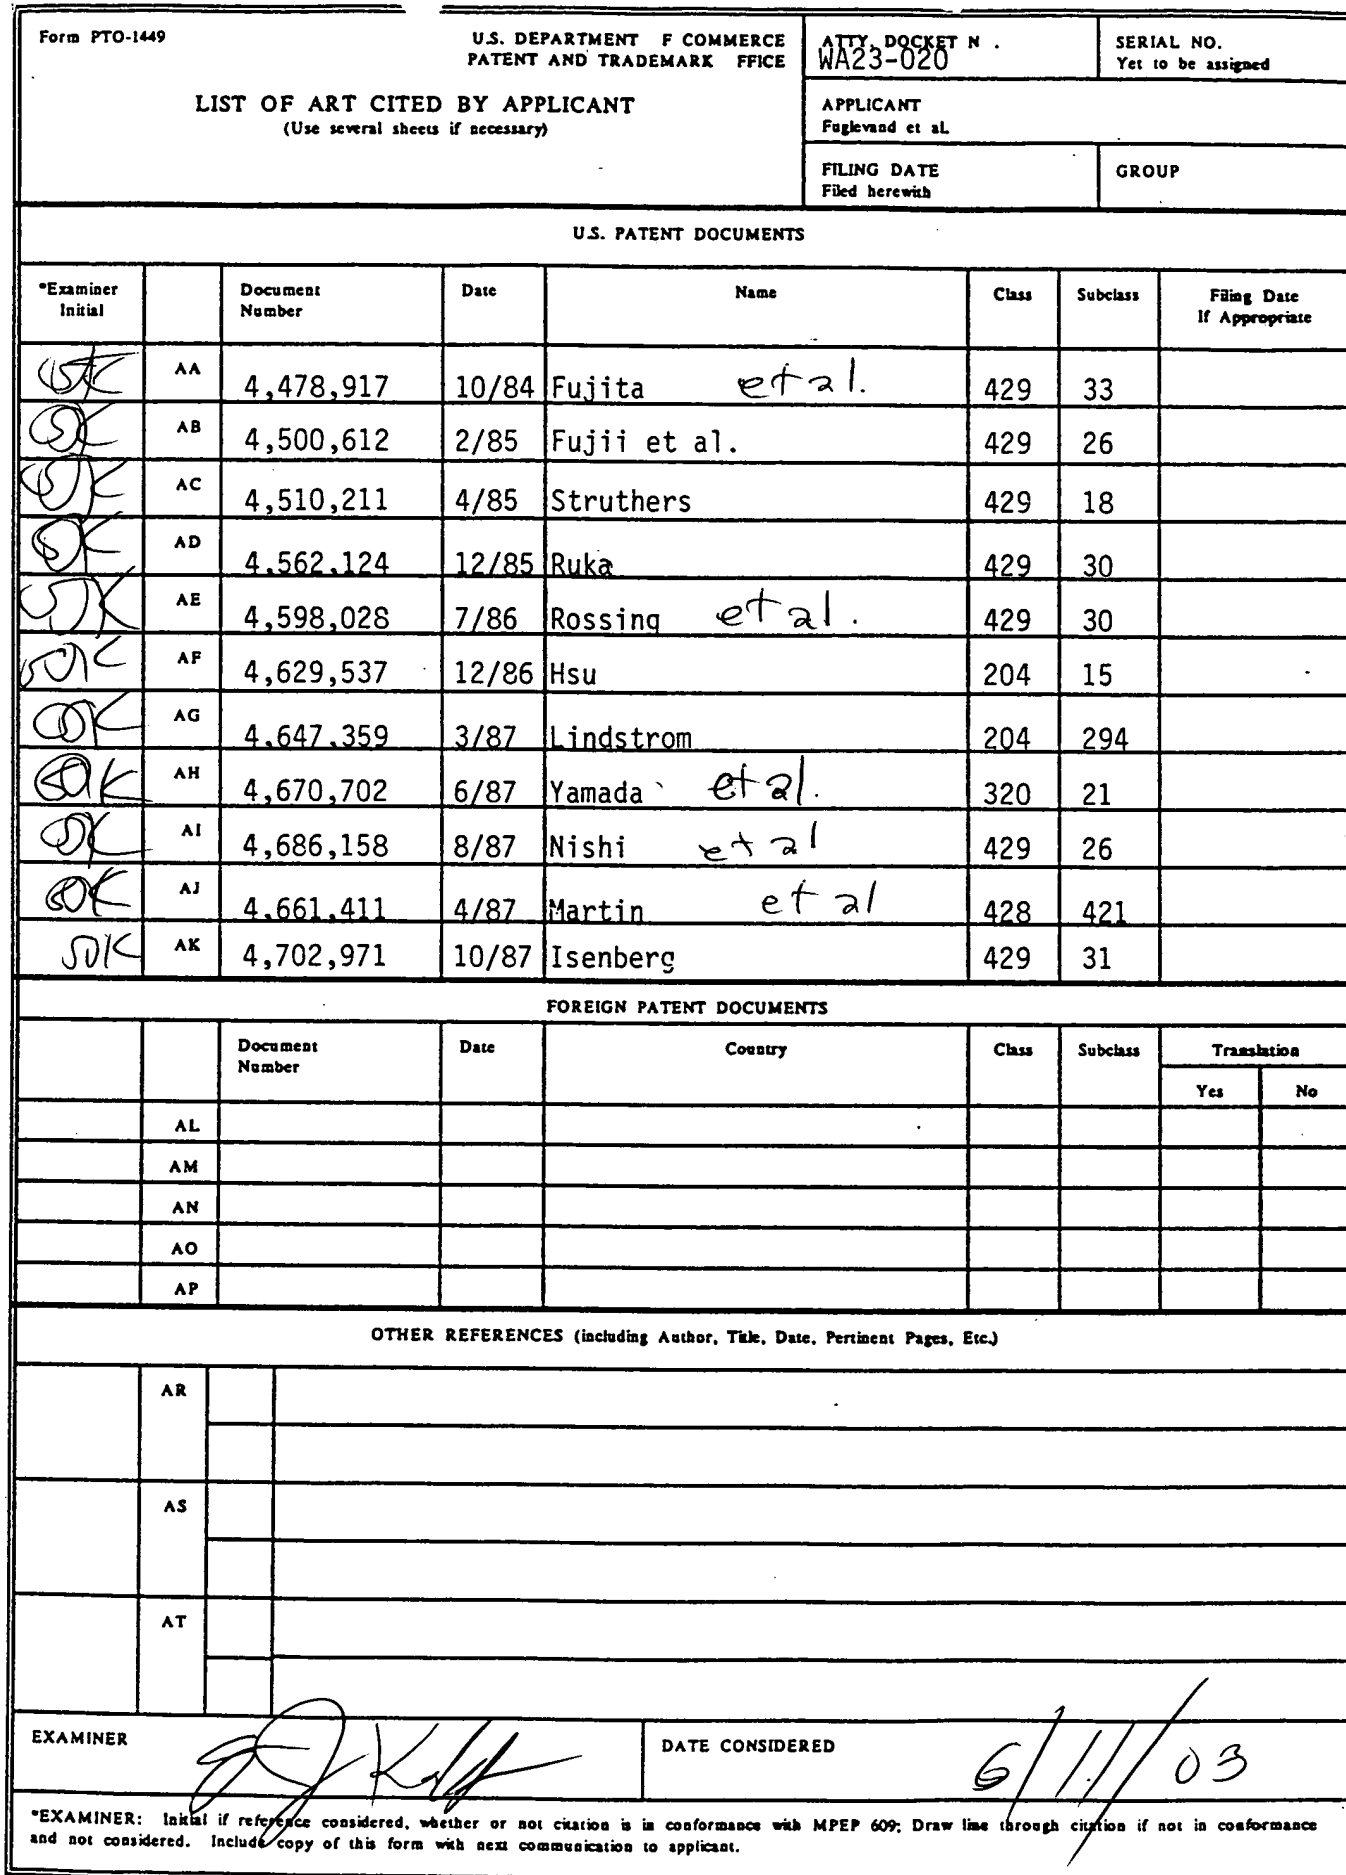 Form PTO-1449
U.S. DEPARTMENT F COMMERCE
PATENT AND TRADEMARK FFICE
ATTY. DOCKET N .
WA23-020
SERIAL NO.
Yet to be assigned
LIST OF ART CITED BY APPLICANT
(Use several sheets if necessary)
APPLICANT
Fuglevand et al.
FILING DATE
Filed herewith
GROUP
U.S. PATENT DOCUMENTS
*Examiner Initial Document Number Date Name Class Subclass Filing Date If Appropriate
AA 4,478,917 10/84 Fujita et al. 429 33
AB 4,500,612 2/85 Fujii et al. 429 26
AC 4,510,211 4/85 Struthers 429 18
AD 4,562,124 12/85 Ruka 429 30
AE 4,598,028 7/86 Rossing et al. 429 30
AF 4,629,537 12/86 Hsu 204 15
AG 4,647,359 3/87 Lindstrom 204 294
AH 4,670,702 6/87 Yamada et al. 320 21
AI 4,686,158 8/87 Nishi et al 429 26
AJ 4,661,411 4/87 Martin et al 428 421
AK 4,702,971 10/87 Isenberg 429 31
FOREIGN PATENT DOCUMENTS
Document Number Date Country Class Subclass Translation
Yes No
AL
AM
AN
AO
AP
OTHER REFERENCES (including Author, Title, Date, Pertinent Pages, Etc.)
AR
AS
AT
EXAMINER
DATE CONSIDERED 6/11/03
*EXAMINER: Initial if reference considered, whether or not citation is in conformance with MPEP 609; Draw line through citation if not in conformance
and not considered. Include copy of this form with next communication to applicant.